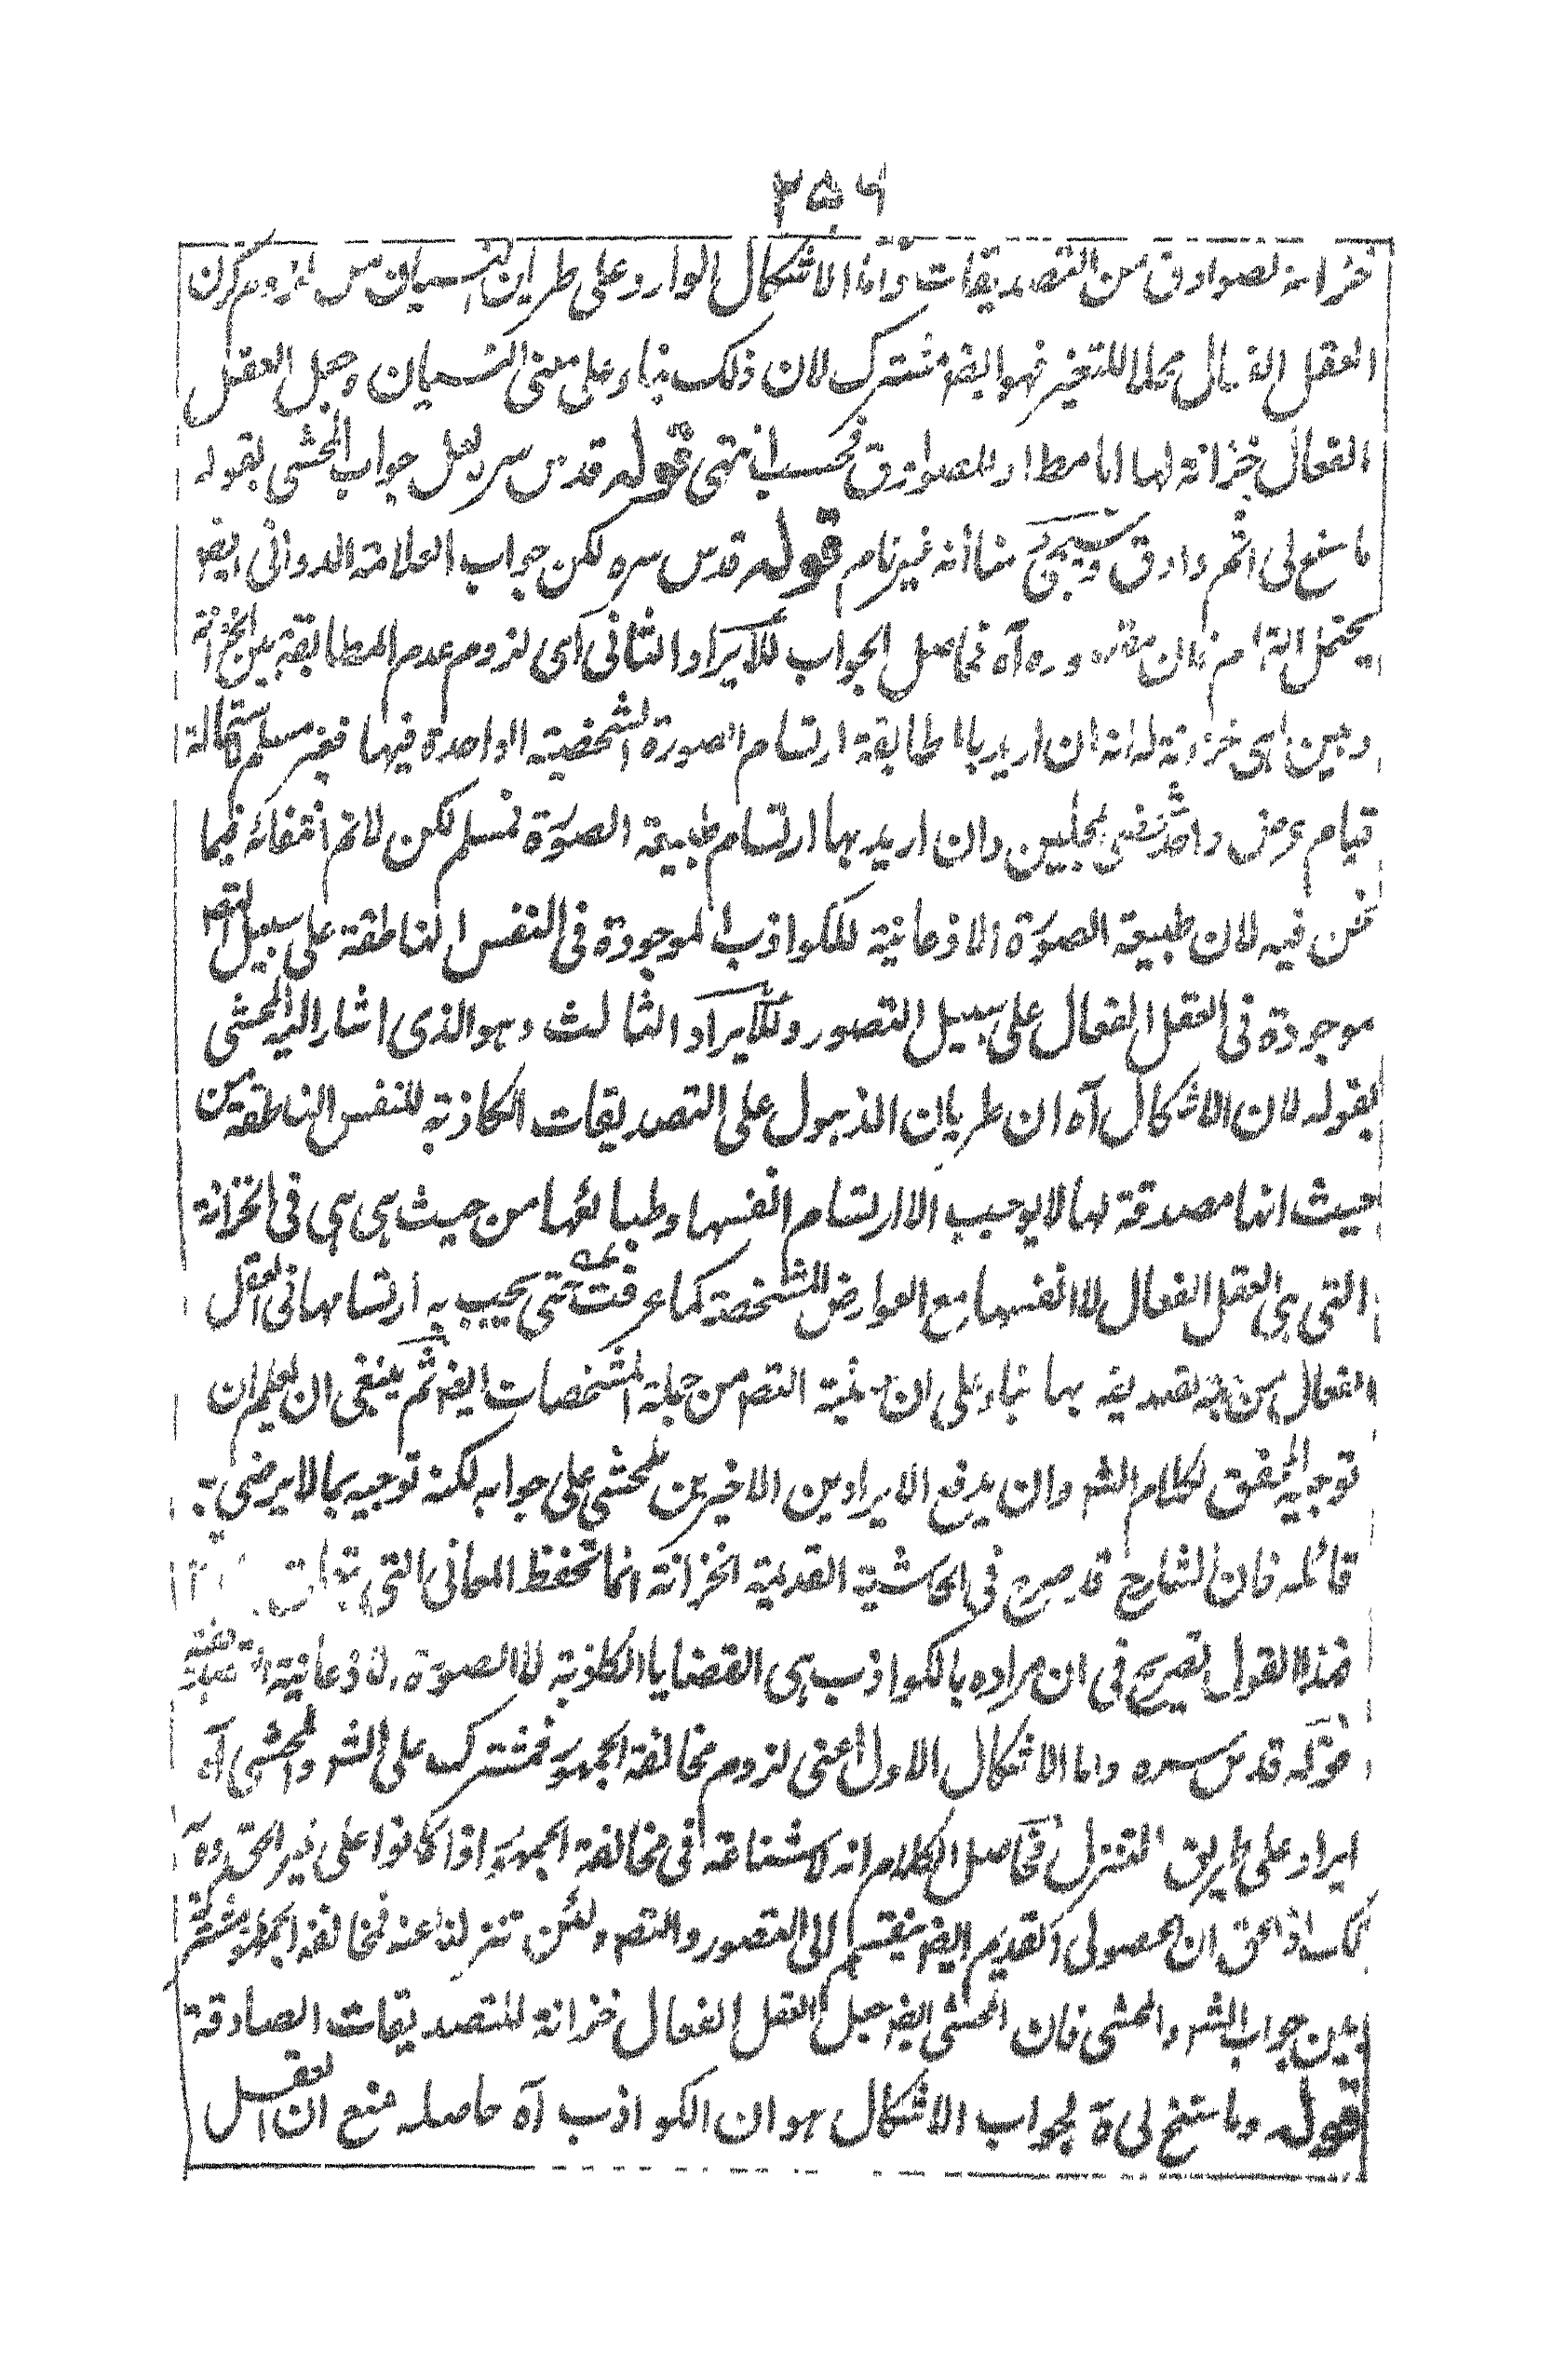 ۲۵۶
خزانة لصوادق من التصديقات وأما الاشكال الوارد على طريان النسيان من لزوم كون
العقل الفعال محلا للتغير فهو ايضا مشترك لان ذلك بناء على معنى النسيان وجعل العقل
الفعال خزانة لها اما مطلقا او للصوادق فحسب انتهى قوله قدس سره لعل جواب المحشى بقوله
ما سنح لى اتم وادق وسيجئ منا أنه غير تام قوله قدس سره لكن جواب العلامة الدوانى ايضا
يحتمل التمام فان مقدوره آه فحاصل الجواب للايراد الثانى اى لزوم عدم المطابقة بين الخزانة
وبين اهى خزانة له انه ان اريد بالمطابقة ارتسام الصورة الشخصية الواحدة فيها فغير مسلم كاستحالة
قيام عرض واحد شخصى بمحلين وان اريد بها ارتسام طبيعة الصورة فمسلم لكن لا نم انتفائه فيما
نحن فيه لان طبيعة الصورة الاذعانية للكواذب الموجودة فى النفس الناطقة على سبيل التصـ
موجودة فى العقل الفعال على سبيل التصور وللايراد الثالث وهو الذى اشار اليه المحشى
بقوله لان الاشكال آه ان طريان الذهول على التصديقات الكاذبة للنفس الناطقة من
حيث انها مصدقة لها لا يوجب الا ارتسام انفسها وطبائعها من حيث هى هى فى الخزانة
التى هى العقل الفعال لا انفسها مع العوارض المشخصة كما عرفت حتى يجب به ارتسامها فى العقل
الفعال من تصديقه بها بناء على ان التصـ من جملة المشخصات ايضا ثم ينبغى ان يعلم ان
توجيه المحقق لكلام الشـ وان يدفع الايرادين الاخيرين للمحشى على جوابه لكنه توجيه بما لا يرضى به
قائله فان الشارح قد صرح فى الحاشية القديمة الخزانة انما تحفظ المعانى التى
فهذا القول تصريح فى ان مراده بالكواذب هى القضايا الكاذبة لا الصورة الاذعانية
قوله قدس سره واما الاشكال الاول أعنى لزوم مخالفة الجمهور فمشترك على الشـ والمحشى آه
ايراد على طريق التنزل فحاصل الكلام انه لا شناعة فى مخالفة الجمهور اذا كانوا على غير الحق وه
كك اذ الحق ان الحصولى القديم ايضا ينقسم الى التصور والتصـ ولئن تنزلنا عنه فمخالفة الجمهور مشتركة
بين جواب الشـ والمحشى فان المحشى ايضا جعل العقل الفعال خزانة للتصديقات الصادقة
قوله وما سنح لى ة لجواب الاشكال هو ان الكواذب آه حاصله منع ان العقل